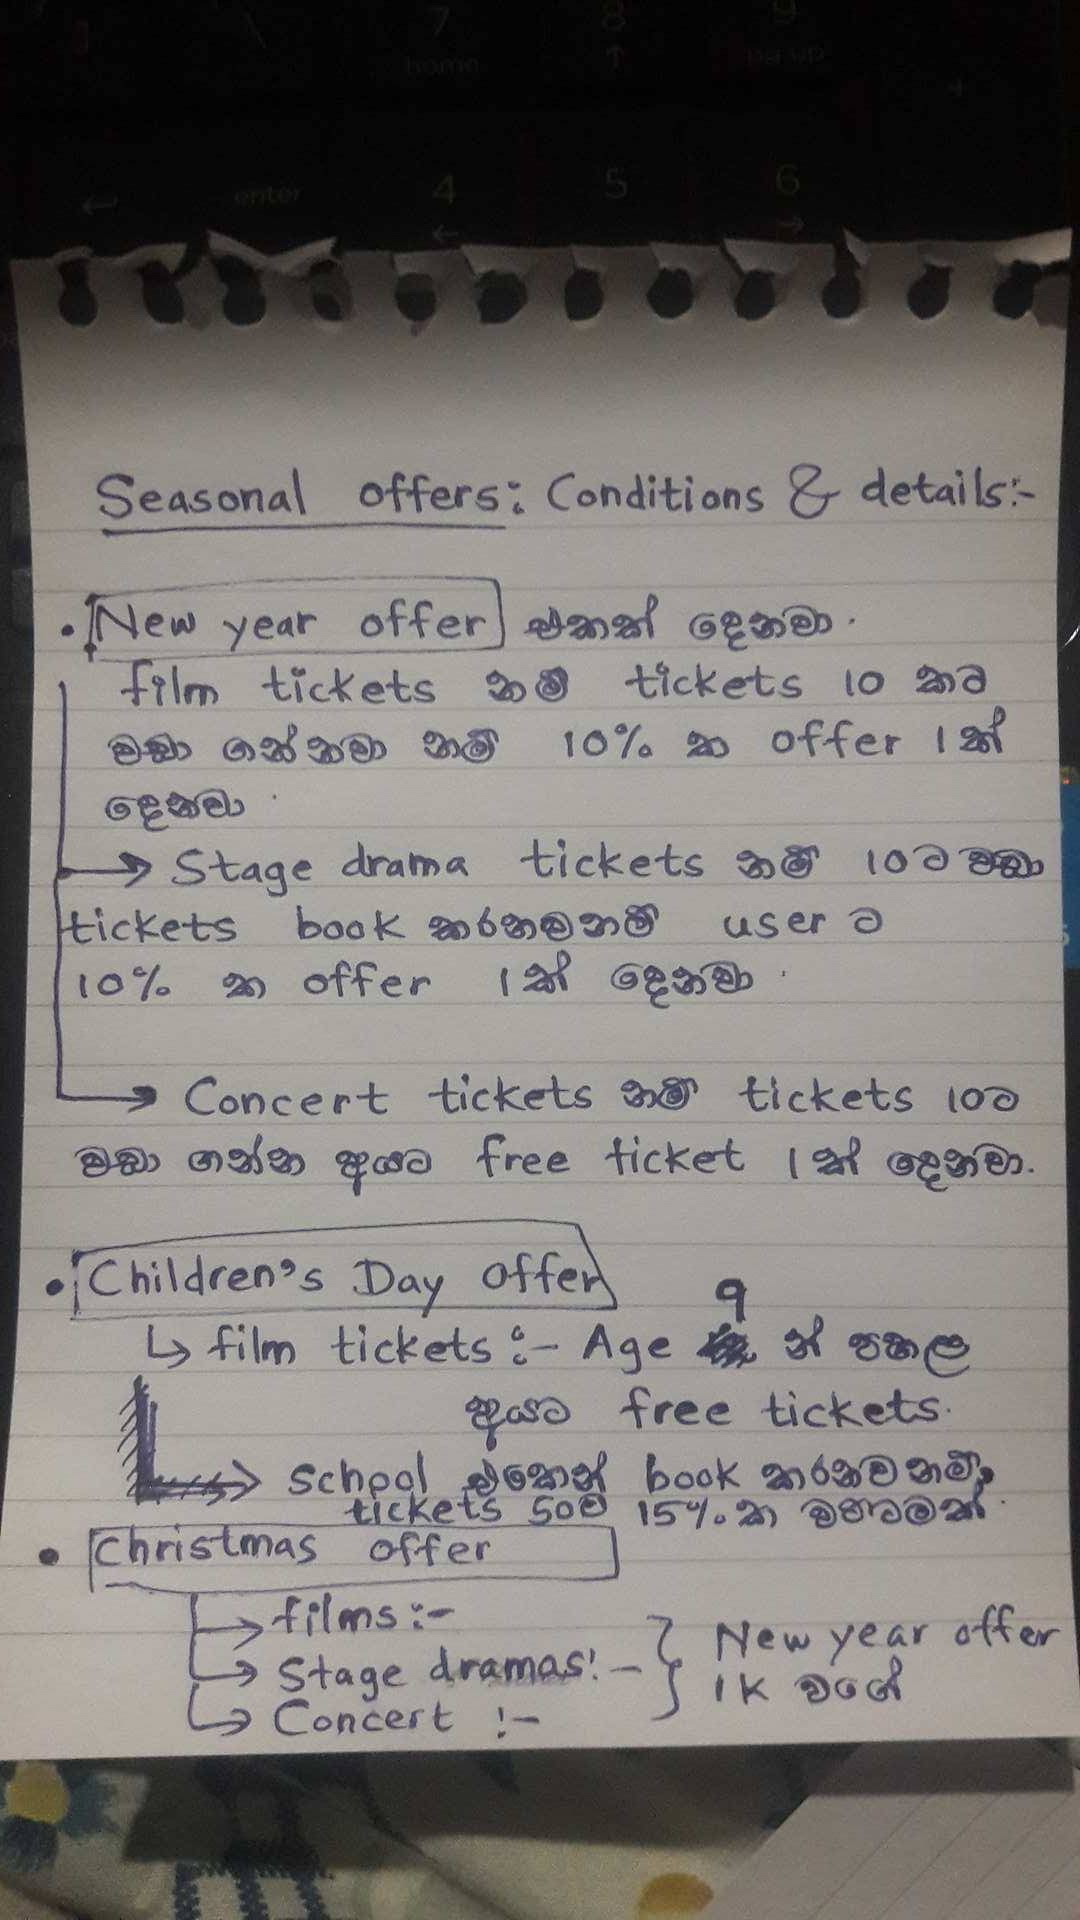 7
8
9
home
↑
pg up
←
enter
4
5
6
←
→
Seasonal offers: Conditions & details:-
• New year offer එකක් දෙනවා.
film tickets නම් tickets 10 කට
වඩා ගන්නවා නම් 10% ක offer 1ක්
දෙනවා.
→ Stage drama tickets නම් 10ට වඩා
tickets book කරනවනම් user ට
10% ක offer 1ක් දෙනවා.
→ Concert tickets නම් tickets 10ට
වඩා ගන්න අයට free ticket 1ක් දෙනවා.
• Children's Day offer
↳ film tickets :- Age 9 න් පහල
අයට free tickets.
→ school එකෙන් book කරනවනම්,
tickets 50ට 15% ක වට්ටමක්.
• Christmas offer
→ films :-
→ Stage dramas :-
→ Concert :-
} New year offer
1K වගේ